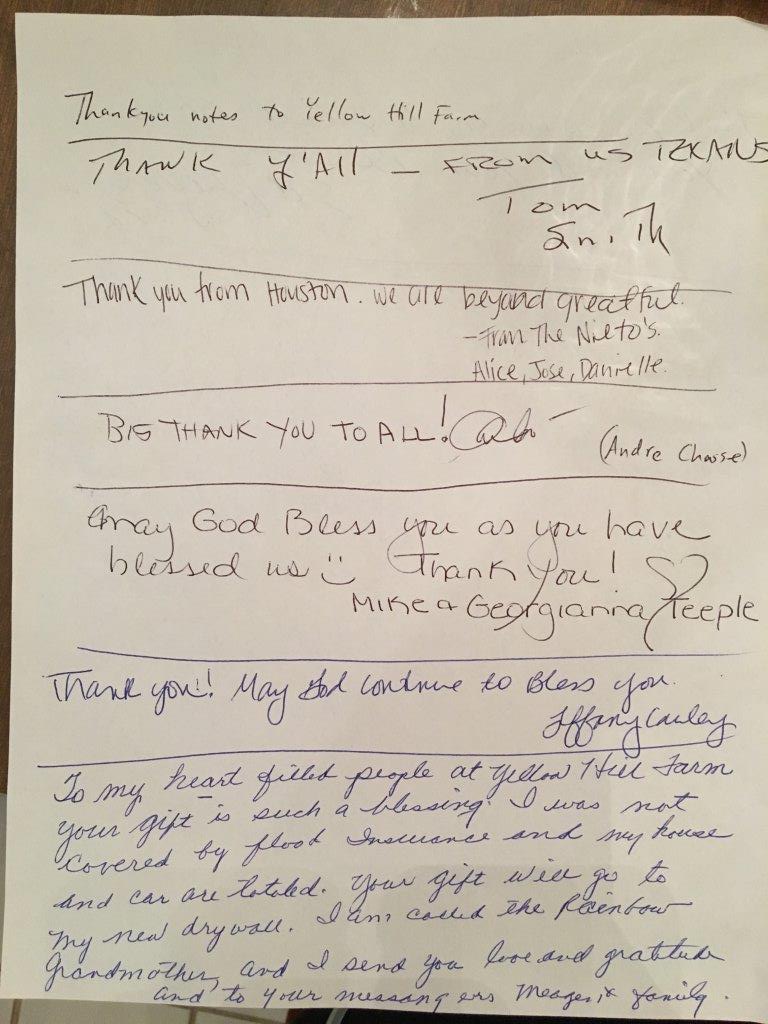 Thankyou notes to Yellow Hill Farm
THANK Y'All — FROM us TEXANS
Tom
Smith
Thank you from Houston. We are beyond greatful.
- From The Nieto's.
Alice, Jose, Danielle.
BIG THANK YOU TO ALL!
(Andre Chasse)
May God Bless you as you have
blessed us Thank You!
Mike & Georgianna Teeple
Thank you!! May God continue to Bless you.
Tiffany Cauley
To my heart filled people at Yellow Hill Farm
your gift is such a blessing. I was not
covered by flood Insurance and my house
and car are totaled. Your gift will go to
my new drywall. I am called the Rainbow
Grandmother, and I send you love and gratitude
and to your messangers & family.